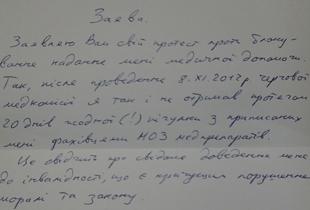 Заява.
Заявляю Вам свій протест проти блоку-
вання надання мені медичної допомоги.
Так, після проведення 8.XI.2017р чергової
медкомісії я так і не отримав протягом
20 днів жодної (!) пігулки з приписаних
мені фахівцями МОЗ медпрепаратів.
Це свідчить про свідоме доведення мене
до інвалідності, що є кричущим порушенням
моралі та закону.